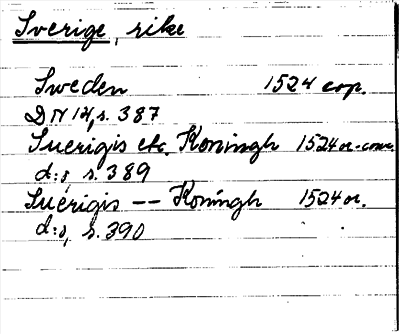 Sverige, rike
Sweden 1524 cop.
DN 14, s. 387
Suerigis etc. Koningh 1524 or-conc.
d:o, s. 389
Suerigis -- Koningh 1524 or.
d:o, s. 390